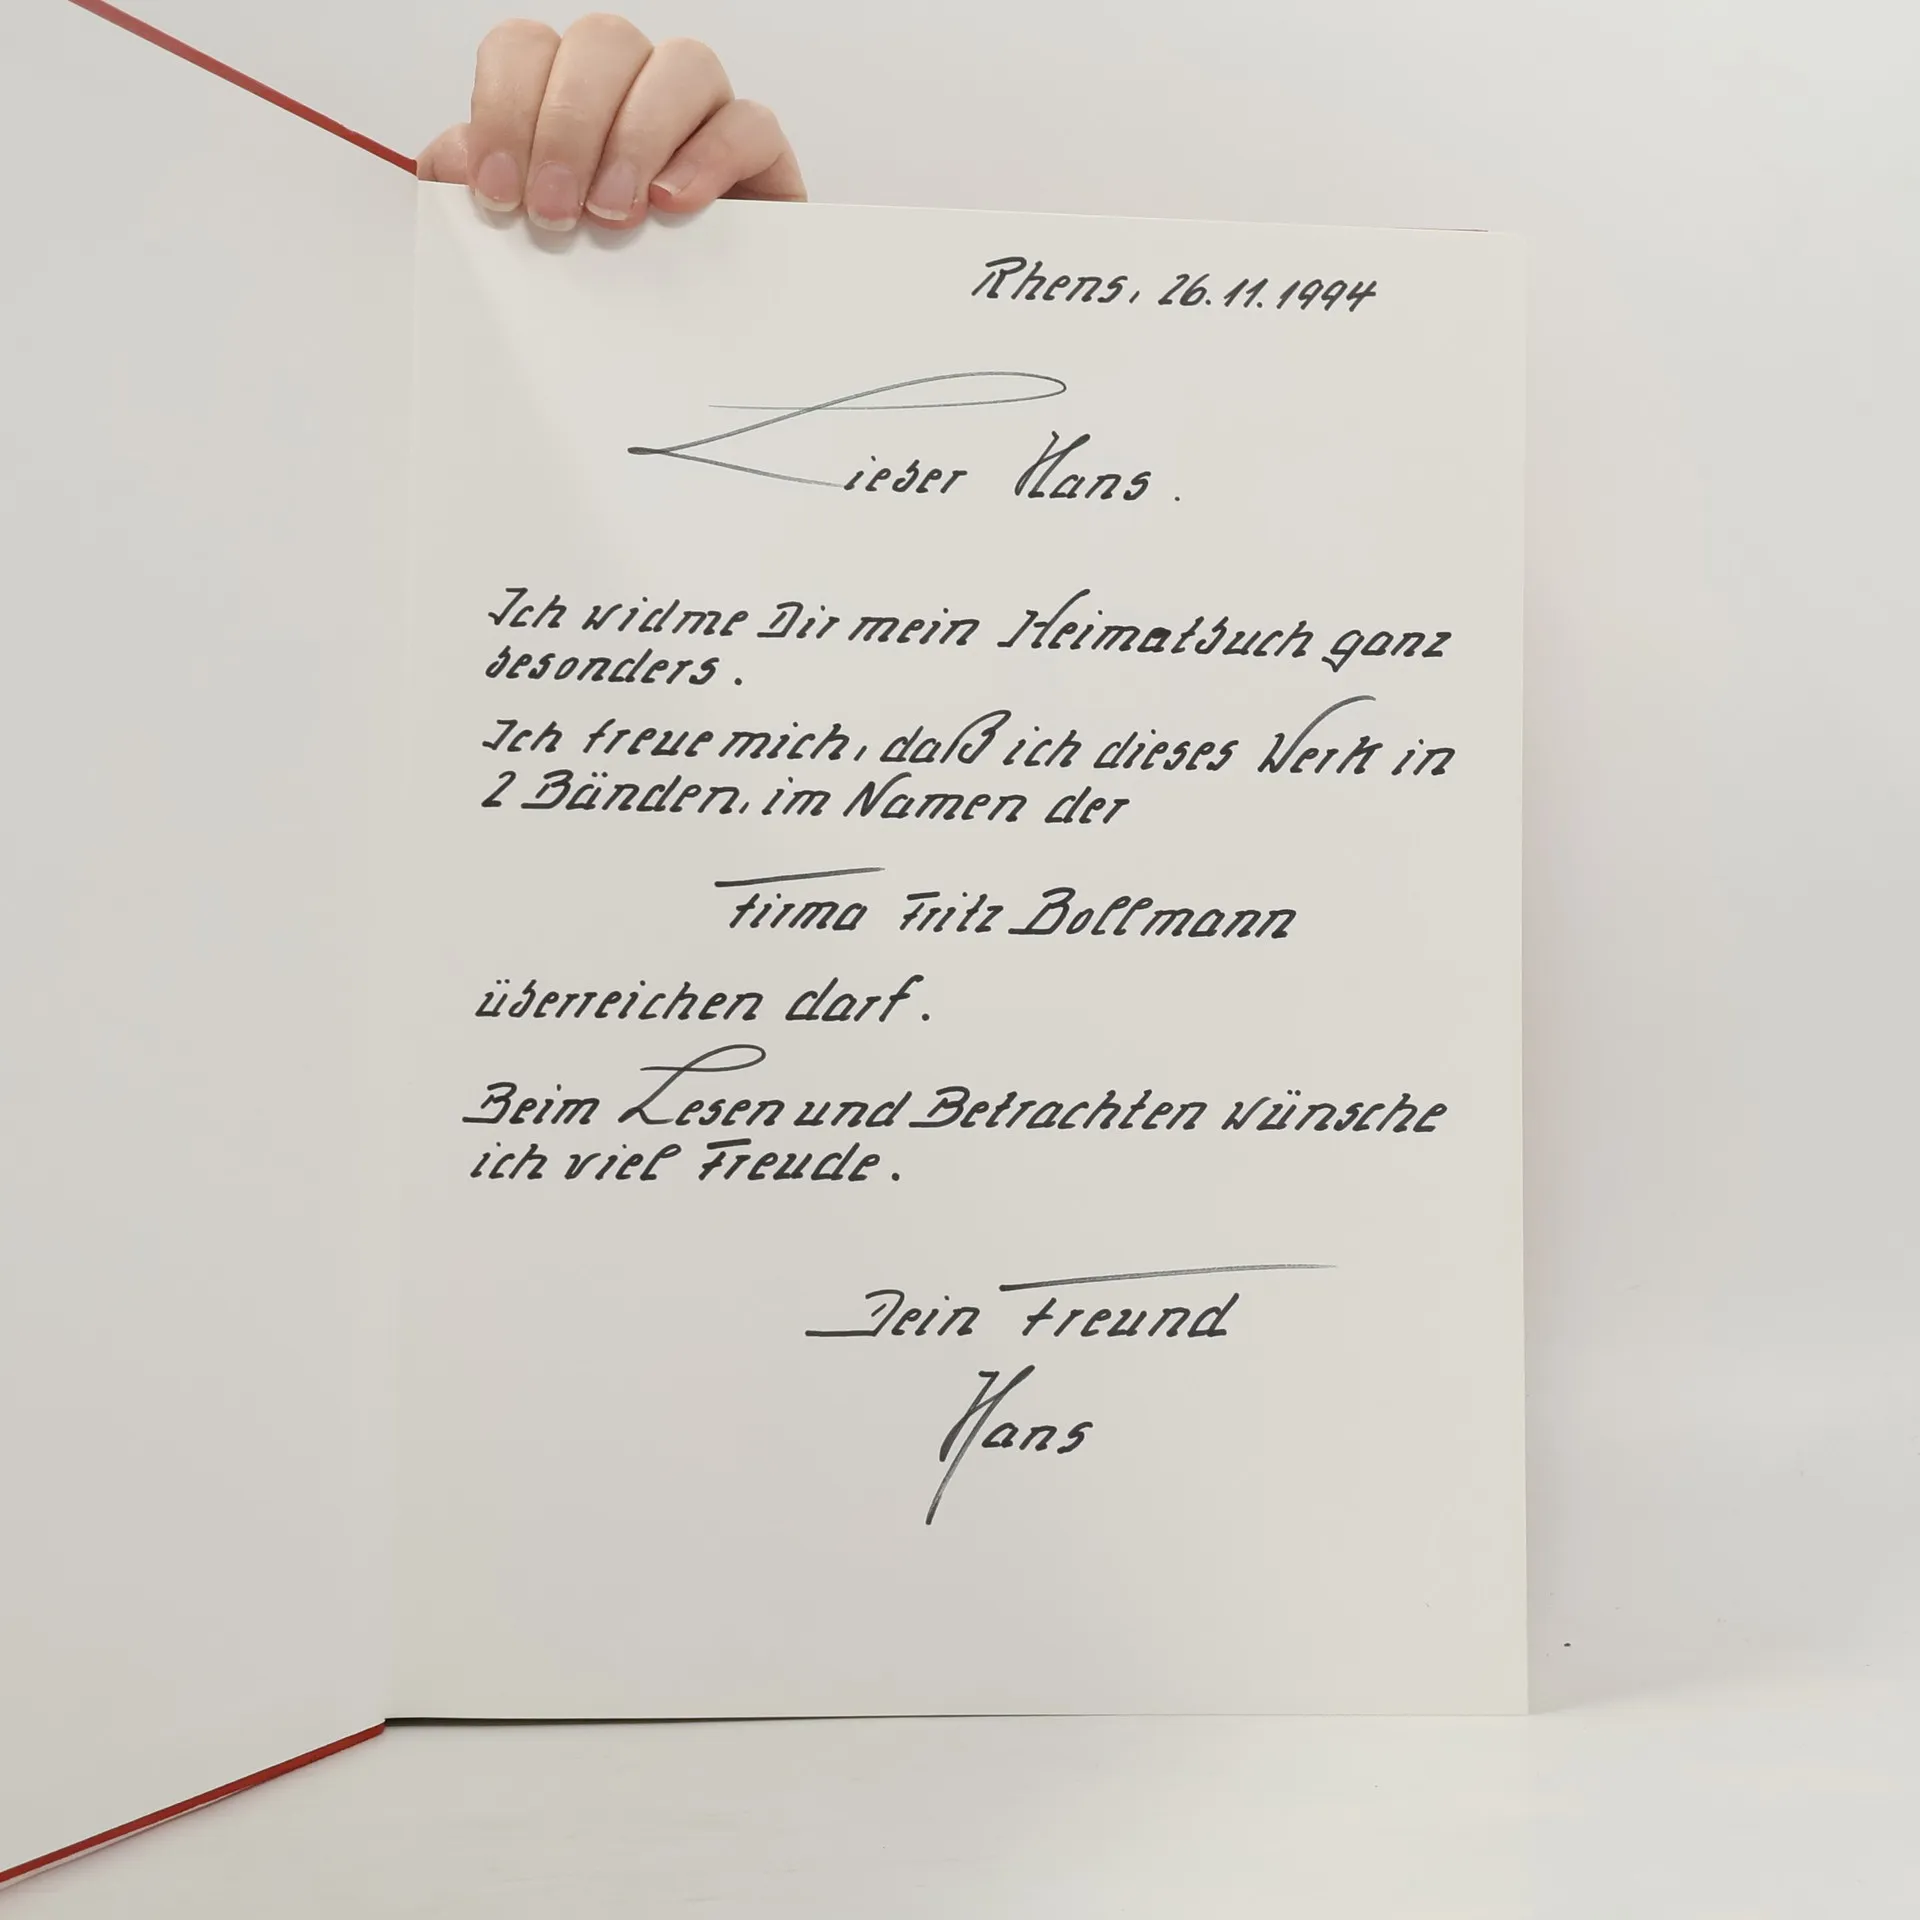 Rhens, 26.11.1994
Lieber Hans.
Ich widme Dir mein Heimatbuch ganz
besonders.
Ich freue mich, daß ich dieses Werk in
2 Bänden, im Namen der
Firma Fritz Bollmann
überreichen darf.
Beim Lesen und Betrachten wünsche
ich viel Freude.
Dein Freund
Hans